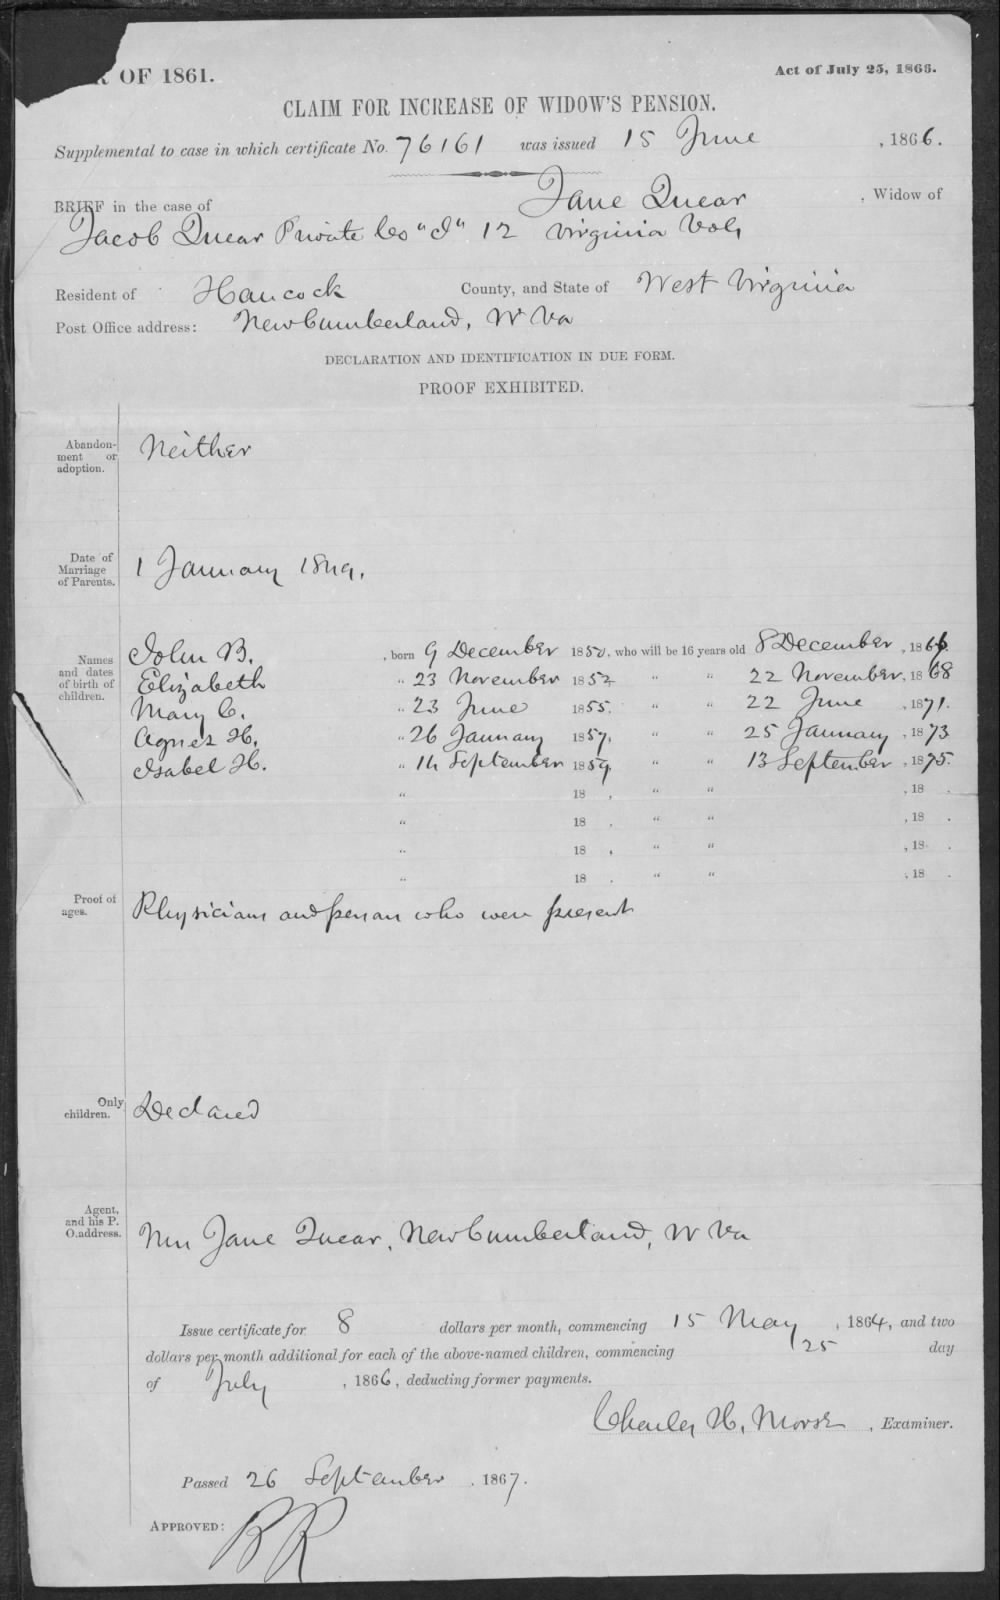 OF 1861.
Act of July 25, 1866.
CLAIM FOR INCREASE OF WIDOW'S PENSION.
Supplemental to case in which certificate No. 76161 was issued 15 June, 1866.
BRIEF in the case of Jane Quear, Widow of
Jacob Quear Private Co "I" 12 Virginia Vols
Resident of Hancock County, and State of West Virginia
Post Office address: New Cumberland, W Va
DECLARATION AND IDENTIFICATION IN DUE FORM.
PROOF EXHIBITED.
Abandonment or adoption. Neither
Date of Marriage of Parents. 1 January 1849.
Names and dates of birth of children.
John B., born 9 December 1850, who will be 16 years old 8 December, 1866.
Elizabeth " 23 November 1852 " " 22 November, 1868
Mary C. " 23 June 1855. " " 22 June, 1871.
Agnes H. " 26 January 1857. " " 25 January, 1873
Isabel H. " 14 September 1859. " " 13 September, 1875.
" 18 , " " , 18 .
" 18 , " " , 18 .
" 18 , " " , 18 .
" 18 . " " , 18 .
Proof of ages. Physicians and person who were present
Only children. Declared
Agent, and his P. O. address. Mrs Jane Quear, New Cumberland, W Va
Issue certificate for 8 dollars per month, commencing 15 May, 1864, and two
dollars per month additional for each of the above-named children, commencing 25 day
of July, 1866, deducting former payments.
Charles H. Morse, Examiner.
Passed 26 September, 1867.
APPROVED: